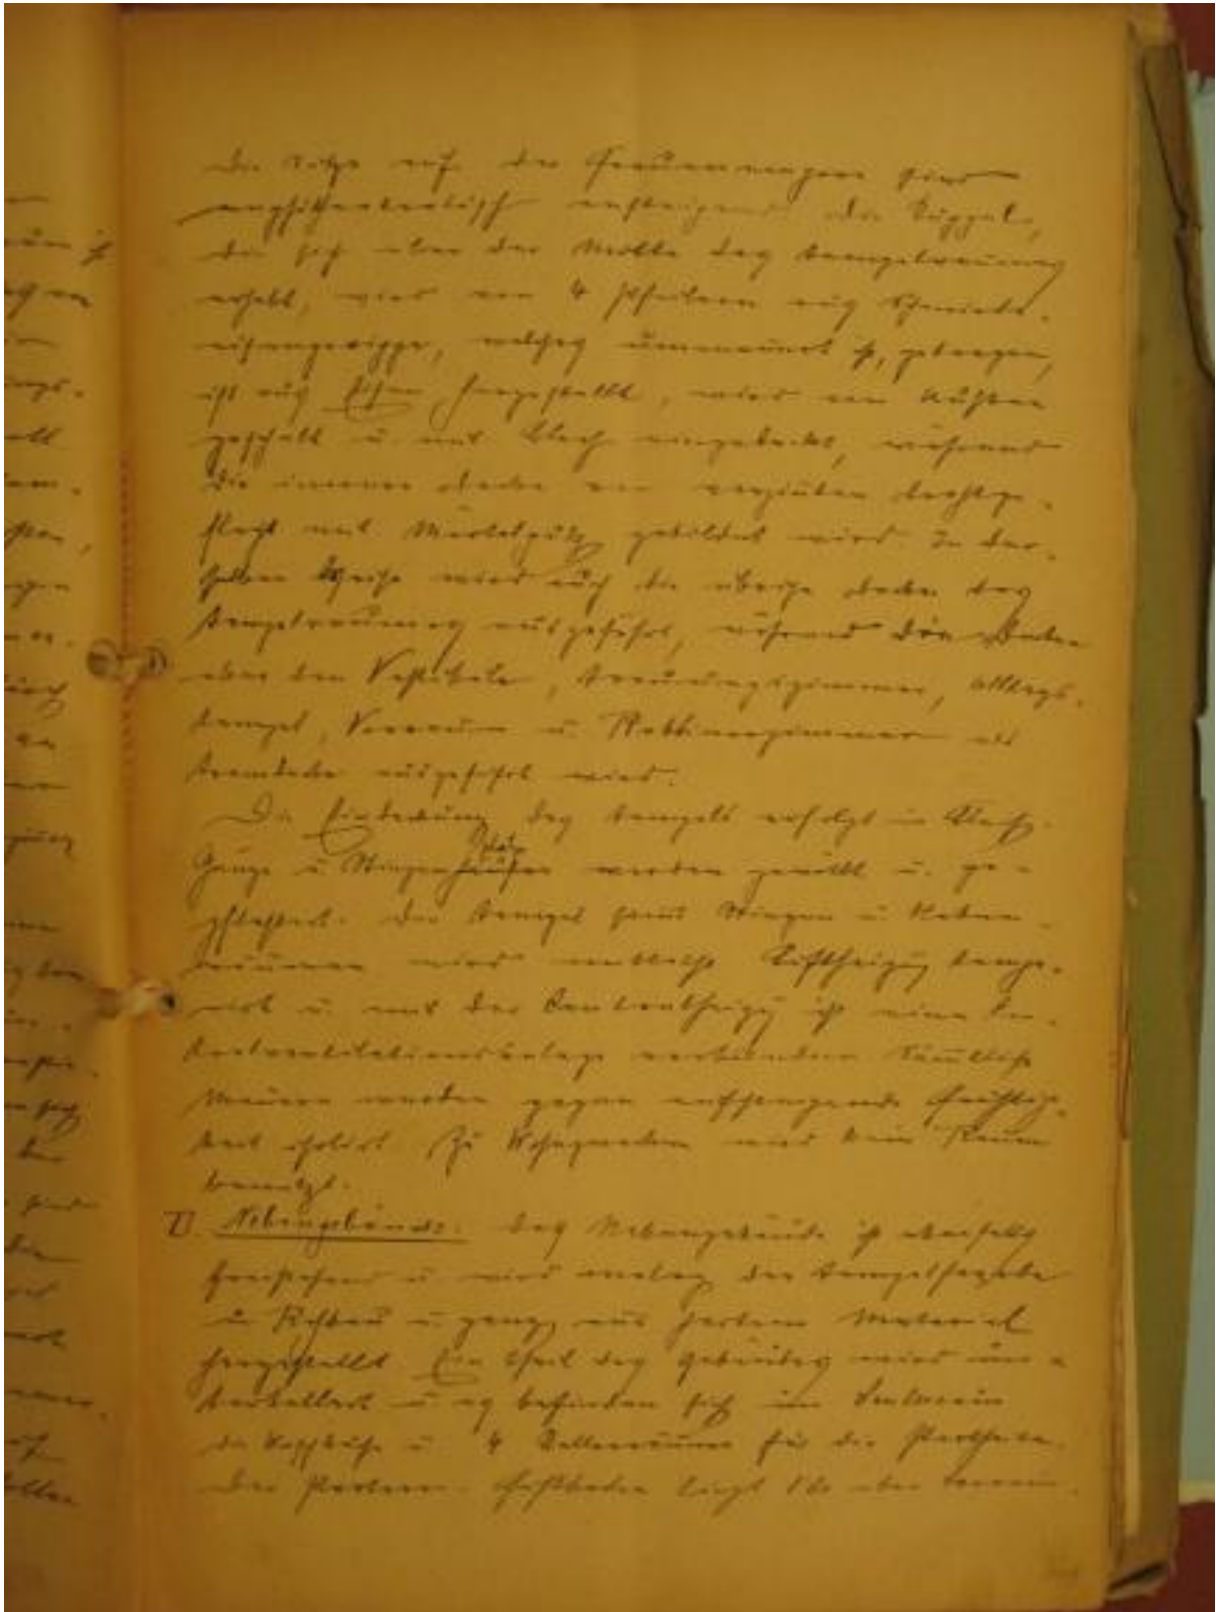 Die Sitze auf der Frauenempore sind
amphitheatralisch ansteigend. Die Kuppel,
die sich über der Mitte des Tempelraumes
erhebt, wird von 4 Pfeilern aus Schmiede-
eisengerippe, welches ummauert ist, getragen,
ist aus Eisen hergestellt, wird von Außen
geschalt u. mit Blech eingedeckt, während
die innere Decke von verzinkten Drahtge-
flecht mit Mörtelputz gebildet wird. In der-
selben Weise wird auch die übrige Decke des
Tempelraumes ausgeführt, während die Decken
über den Vestibule, Trauungszimmer, Alltags-
tempel, Vorraum u. Rabbinerzimmer als
Tramdecke ausgeführt wird.
Die Eindeckung des Tempels erfolgt in Blech.
Gänge u. Stiegenhäuser werden gewölbt u. ge-
pflastert. Der Tempel sammt Stiegen u. Neben-
räumen wird mittelst Luftheizung tempe-
rirt u. mit der Centralheizg ist eine
verbunden. Sämtliche
Mauern werden gegen aufsteigende Feuchtig-
keit isolirt. Zu Wohnzwecken wird kein Raum
benützt.
II. Nebengebäude. Das Nebengebäude ist ebenfalls
freistehend u. wird analog der Tempelfaçade
u. ganz aus hartem Material
hergestellt. Ein Theil des Gebäudes wird un-
terkellert u. es befinden sich im Souterrain
die Waschküche u. 4 Kellerräume für die Partheien.
Der Parterre-Fußboden liegt über Terrain.